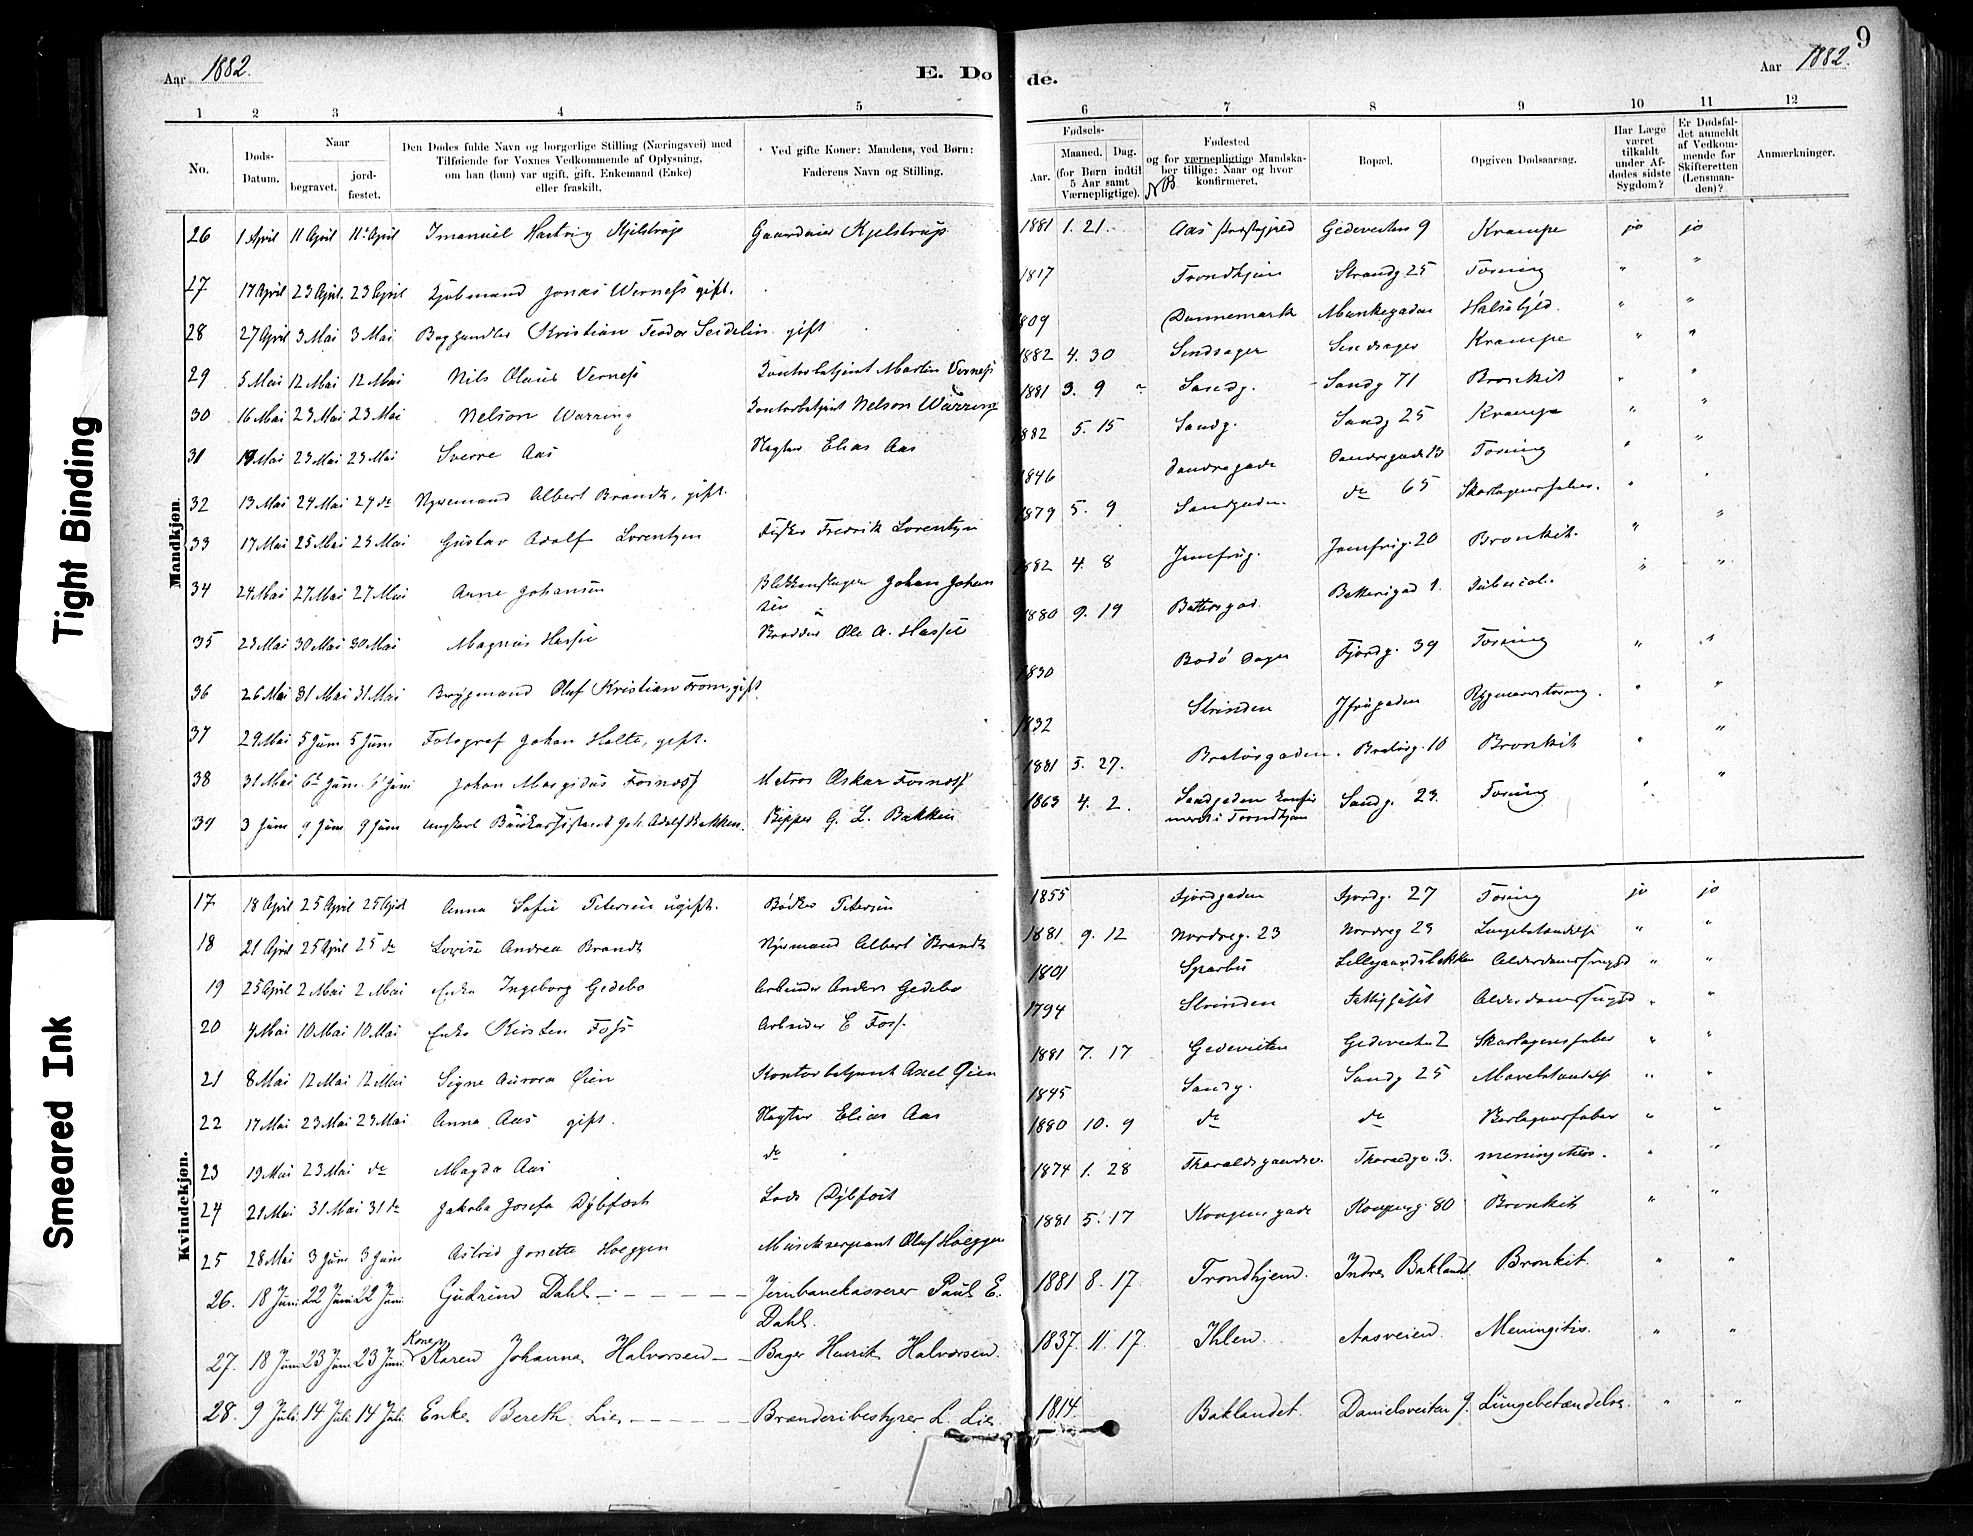 9
Aar 1882.
E. Dø de.
Aar 1882.
1 2 3 4 5 6 7 8 9 10 11 12
No.
Døds-Datum.
Naar
begravet.
jord-fæstet.
Den Dødes fulde Navn og borgerlige Stilling (Næringsvei) med
Tilføiende for Voxnes Vedkommende af Oplysning,
om han (hun) var ugift, gift, Enkemand (Enke)
eller fraskilt.
Ved gifte Koner: Mandens, ved Børn:
Faderens Navn og Stilling.
Fødsels-
Aar.
Maaned. Dag.
(for Børn indtil
5 Aar samt
Værnepligtige).
Fødested
og for værnepligtige Mandska-
ber tillige: Naar og hvor
konfirmeret.
NB
Bopæl.
Opgiven Dødsaarsag.
Har Læge
været
tilkaldt
under Af-
dødes sidste
Sygdom?
Er Dødsfal-
det anmeldt
af Vedkom-
mende for
Skifteretten
(Lensman-
den)?
Anmærkninger.
Mandkjøn.
26 1 April 11 April 11 April Imanuel Hartvig Kjelstrup Kjelstrup 1881 1. 21. Aas Gedeveiten 9 Krampe jo jo
27 17 April 23 April 23 April Kjøbmand Jonas Werness gift. 1817 Trondhjem Strandg 25 Tæring " "
28 27 April 3 Mai 3 Mai Kristian Feodor Seidelin gift 1809 Dannemark Munkegaden " "
29 5 Mai 12 Mai 12 Mai Nils Olaus Verness Kontorbetjent Martin Verness 1882 4. 30 Krampe " "
30 16 Mai 23 Mai 23 Mai Nelson Warring Kontorbetjent Nelson Warring 1881 3. 9 Sandg. Sandg 71 Bronkit " "
31 19 Mai 23 Mai 23 Mai Sverre Aas Elias Aas 1882 5. 15 Sandg. Sandg 25 Krampe " "
32 13 Mai 24 Mai 24 do Albert Brandt, gift. 1846 Tæring " "
33 17 Mai 25 Mai 25 Mai Gustav Adolf Lorentzen Fisker Fredrik Lorentzen 1879 5. 9 Sandgaden do 65 Skarlagensfeber. " "
34 24 Mai 27 Mai 27 Mai Arne Johansen Blikkenslager Johan Johan
sen 1882 4. 8 Jomfrug. Jomfrug. 20 Bronkit. " "
35 25 Mai 30 Mai 30 Mai Magnus Ole A. 1880 9. 19 " "
36 26 Mai 31 Mai 31 Mai Brygmand Oluf Kristian From, gift. 1830 Bodø Fjordg. 39 Tæring " "
37 29 Mai 5 Juni 5 Juni Fotograf Johan Holte, gift. 1832 Strinden Rygmarvstæring. " "
38 31 Mai 6 Juni 6 Juni Johan Margidus Fosness Matros Oskar Fosness 1881 5. 27. Bratørgaden. Bratørg. 10 Bronkit " "
39 3 Juni 9 Juni 9 Juni Ungkarl Joh. Adolf Bakken. G. L. Bakken 1863 4. 2. Sandgaden konfir
meret i Trondhjem Sandg. 23. Tæring " "
Kvindekjøn.
17 18 April 25 April 25 April Anna Sofie Petersen ugift. Bødker Petersen 1855 Fjordgaden Fjordg. 27 Tæring jo jo
18 21 April 25 April 25 do Lovise Andrea Brandt Albert Brandt 1881 9. 12 Nordreg. 23 Nordreg 23 Lungebetændelse " "
19 25 April 2 Mai 2 Mai Enke Ingeborg Gedebo Arbeider Anders Gedebo 1801 Sparbu Lillegaardsbakken Alderdomssvaghed " "
20 4 Mai 10 Mai 10 Mai Enke Kirsten Foss Arbeider E Foss. 1794 Strinden Alderdomssvaghed " "
21 8 Mai 12 Mai 12 Mai Signe Aurora Øien Kontorbetjent Axel Øien 1881 7. 17 Gedeveiten Gedeveiten 2 Skarlagensfeber " "
22 17 Mai 23 Mai 23 Mai Anna Aas gift. Elias Aas 1845 Sandg. Sandg 25 " "
23 19 Mai 23 Mai do Magda Aas do 1880 10. 9 do do " "
24 21 Mai 31 Mai 31 do Jakoba Josefa Dybfest Lods Dybfest 1874 1. 28 meningitis. " "
25 28 Mai 3 Juni 3 Juni Astrid Jonette Hoeggen Musiksergeant Oluf Hoeggen 1881 5. 17 Kongensgade Kongensg. 80 Bronkit " "
26. 18 Juni 22 Juni 22 Juni Gudrun Dahl Jernbanekasserer Paul E.
Dahl. 1881 8. 17. Trondhjem. Indre Baklandet Bronkit. " "
27. 18 Juni 23 Juni 23 Juni Kone Karen Johanna Halvorsen Bager Henrik Halvorsen. 1837 11. 17. Ihlen. Aasveien. Meningitis. " "
28. 9 Juli 14 Juli 14 Juli Enke Bereth Lie Brænderibestyrer L. Lie 1814 Baklandet. Danielsveiten 9. Lungebetændelse. " "
Tight Binding
Smeared Ink